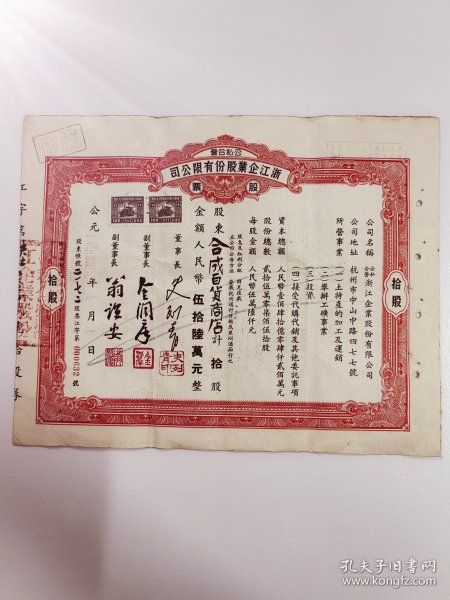 公私合營
浙江企業股份有限公司
股票
拾股
拾股
公司名稱 公私合營 浙江企業股份有限公司
公司地址 杭州市中山中路四七七號
所營事業 (一)土特產的加工及運銷
(二)舉辦工礦事業
(三)投資
(四)接受代購代銷及其他委託事項
資本總額 人民幣壹佰肆拾億零肆仟貳佰萬元
股份總數 貳拾伍萬零柒佰伍拾股
每股金額 人民幣伍萬陸仟元
股東 合成百貨商店 計 拾 股
金額 人民幣 伍拾陸萬元 整
董事長
副董事長
副董事長
公元 年 月 日
股東帳號 二七二 股票江字第 000632 號
孔夫子旧书网
www.kongfz.com